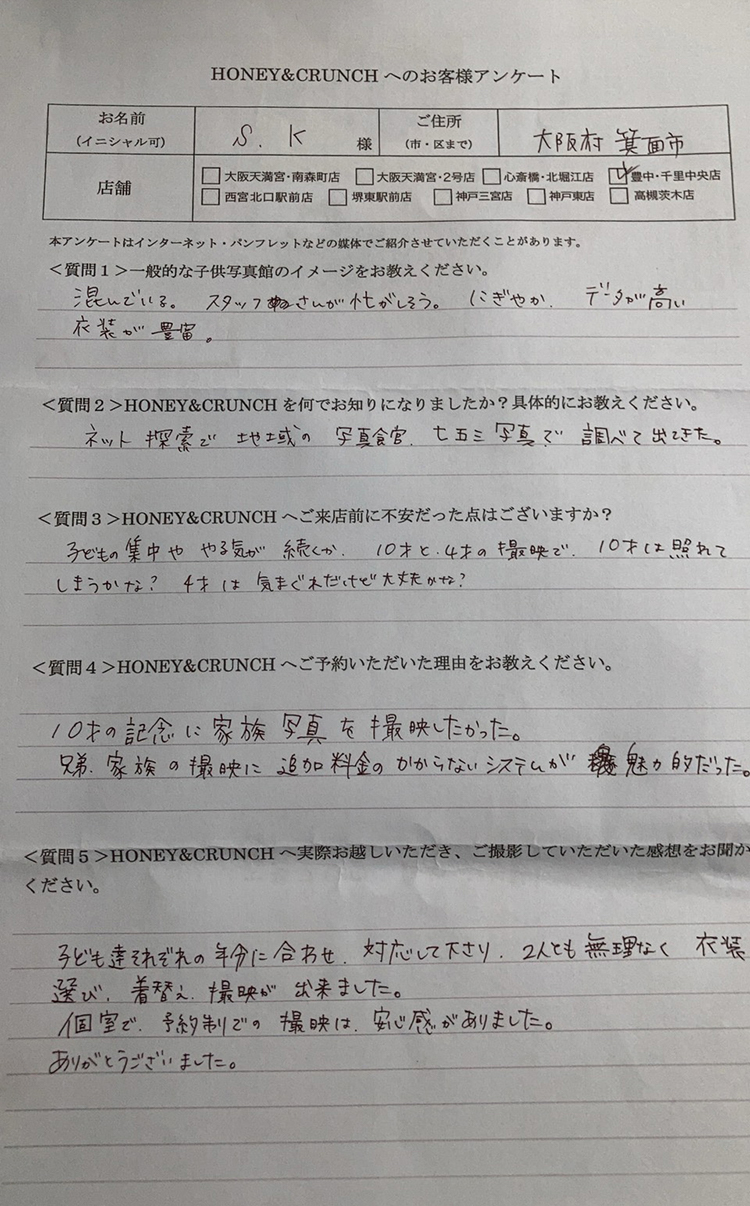 HONEY&CRUNCH へのお客様アンケート
お名前 (イニシャル可) S. K 様 ご住所 (市・区まで) 大阪府 箕面市
店舗 □大阪天満宮・南森町店 □大阪天満宮・2号店 □心斎橋・北堀江店 ☑豊中・千里中央店
□西宮北口駅前店 □堺東駅前店 □神戸三宮店 □神戸東店 □高槻茨木店
本アンケートはインターネット・パンフレットなどの媒体でご紹介させていただくことがあります。
＜質問1＞一般的な子供写真館のイメージをお教えください。
混んでいる。 スタッフさんが忙がしそう。 にぎやか、 データが高い
衣装が豊富。
＜質問2＞HONEY&CRUNCH を何でお知りになりましたか？具体的にお教えください。
ネット探索で 地域の 写真館、七五三写真で 調べて出てきた。
＜質問3＞HONEY&CRUNCH へご来店前に不安だった点はございますか？
子どもの集中や やる気が 続くか、 10才と、4才の撮映で、 10才は照れて
しまうかな？ 4才は 気まぐれだけど大丈夫かな？
＜質問4＞HONEY&CRUNCH へご予約いただいた理由をお教えください。
10才の記念に家族写真を撮映したかった。
兄弟、家族の撮映に 追加料金のかからないシステムが 魅力的だった。
＜質問5＞HONEY&CRUNCH へ実際お越しいただき、ご撮影していただいた感想をお聞か
ください。
子ども達それぞれの年分に合わせ、対応して下さり、2人とも無理なく 衣装
選び、着替え、撮映が 出来ました。
個室で、予約制での 撮映は、安心感がありました。
ありがとうございました。